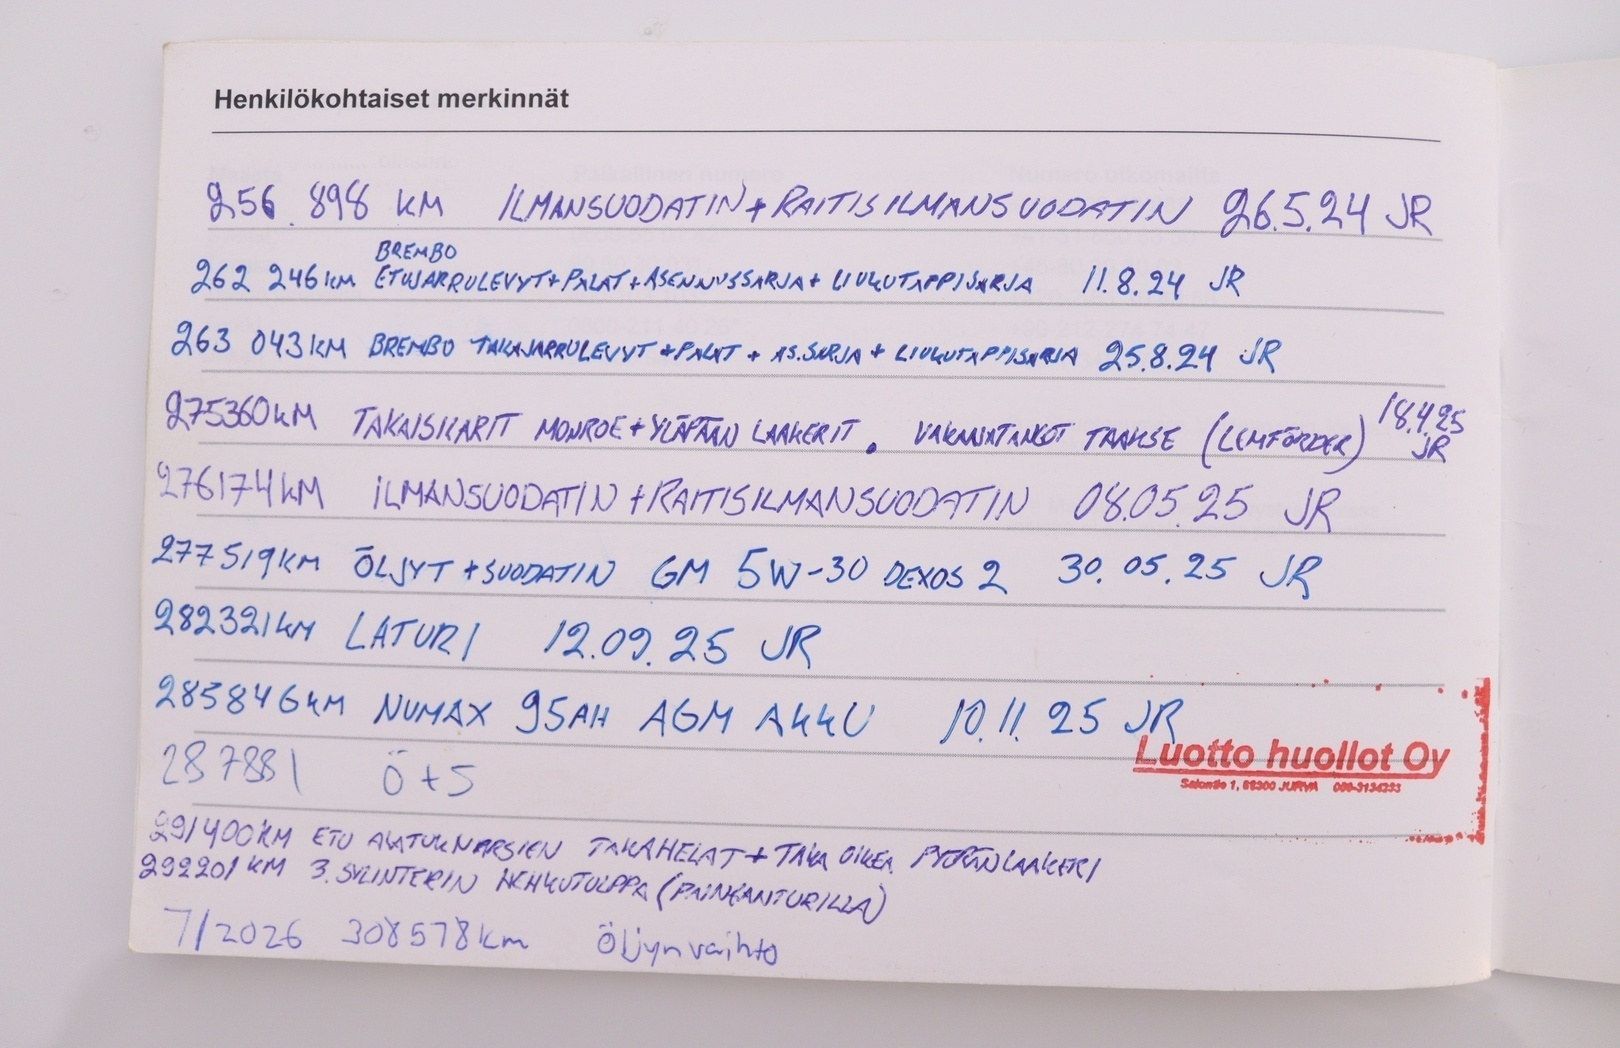 Henkilökohtaiset merkinnät
256 898 KM ILMANSUODATIN + RAITISILMANSUODATIN 26.5.24 JR
BREMBO
262 246KM ETUJARRULEVYT+PALAT+ASENNUSSARJA+LIUKUTAPPISARJA 11.8.24 JR
263 043KM BREMBO TAKAJARRULEVYT+PALAT + AS.SARJA + LIUKUTAPPISARJA 25.8.24 JR
275360KM TAKAISKARIT MONROE+YLÄPÄÄN LAAKERIT. VAKAAJATANGOT TAAKSE (LEMFÖRDER) 18.4.25 JR
276174KM ILMANSUODATIN +RAITISILMANSUODATIN 08.05.25 JR
277519KM ÖLJYT +SUODATIN GM 5W-30 DEXOS 2 30.05.25 JR
282321KM LATURI 12.09.25 JR
285846KM NUMAX 95AH AGM AKKU 10.11.25 JR
Luotto huollot Oy
1, JURVA
287881 Ö+S
291400KM ETU ALATUKIVARSIEN TAKAHELAT + TAKA OIKEA PYÖRÄNLAAKERI
292201 KM 3. SYLINTERIN HEHKUTULPPA (PAINEANTURILLA)
7/2026 308578km Öljynvaihto